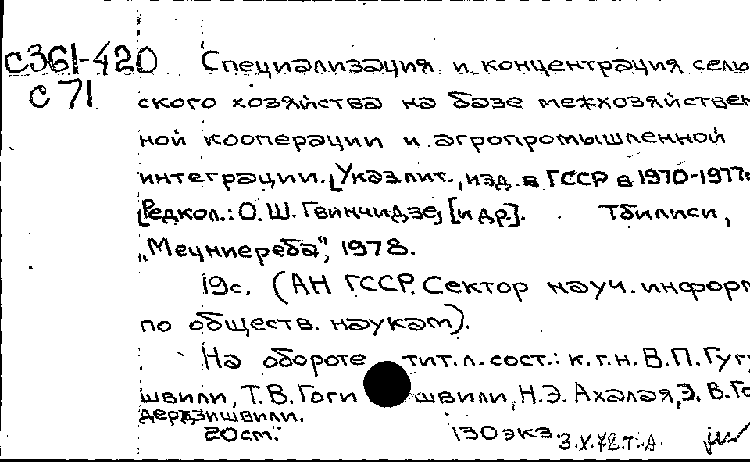 С361-420 Специализация и концентрация сель
С 71 ского хозяйства на базе межхозяйствен
ной кооперации и агропромышленной
интеграции. [Указ. лит., изд. в ГССР в 1970-1977г
[Редкол.: О.Ш. Гвинчидзе, [и др]. Тбилиси,
„Мецниереба", 1978.
19с. (АН ГССР. Сектор науч. информ
по обществ. наукам).
На обороте тит. л. сост.: к.г.н. В.П. Гуг
швили, Т.В. Гоги швили, Н.Э. Ахалая, Э. В. Го
дердзишвили.
20см. 130 экз.